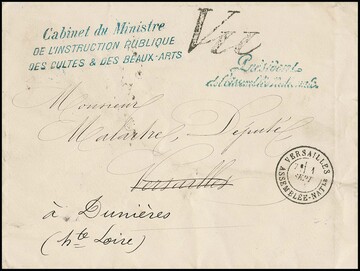 Cabinet du Ministre
DE L'INSTRUCTION PUBLIQUE
DES CULTES & DES BEAUX-ARTS
Vu
Président
de l'Assemblée Nationale.
Monsieur
Malartre, Député
Versailles
à Dunières
(hte Loire)
VERSAILLES
ASSEMBLÉE-NATLE